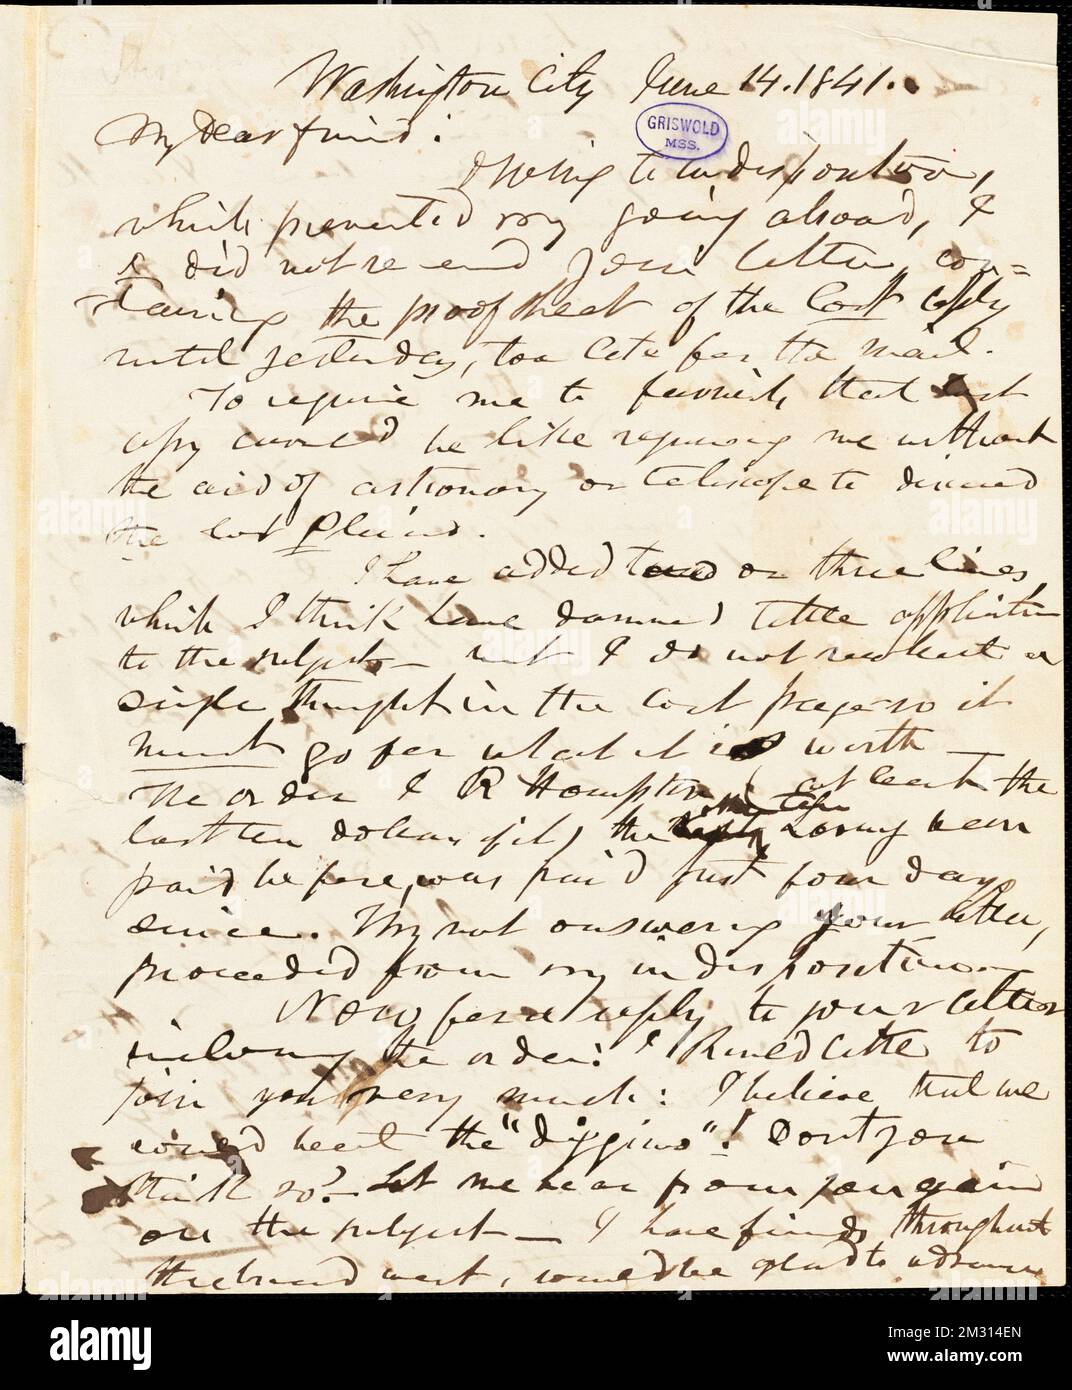 Washington City June 14. 1841.
My Dear friend:
GRISWOLD
MSS.
Owing to indisposition,
which prevented my going abroad, I
did not re-end your letter con=
taining the proof sheet of the lost copy
until yesterday, too late for the mail.
To require me to furnish that lost
copy would be like requiring me without
the aid of astronomy or telescope to discover
the lost Pleiad.
I have added two or three lines,
which I think have damned little application
to the subject — but I do not recollect a
single thought in the lost page so it
must go for what it is worth —
The order I R Hampton (at least the
last ten dollars of it) the letter having been
paid before, was paid just four days
since. My not answering your letter,
proceeded from my indisposition —
Now for a reply to your letter
inclosing the order: I would like to
join you very much: I believe that we
would beat the "diggins"! Dont you
think so? — Let me hear from you again
on the subject — I have friends throughout
the broad west, would be glad to advance
alamy
Image ID: 2M314EN
www.alamy.com